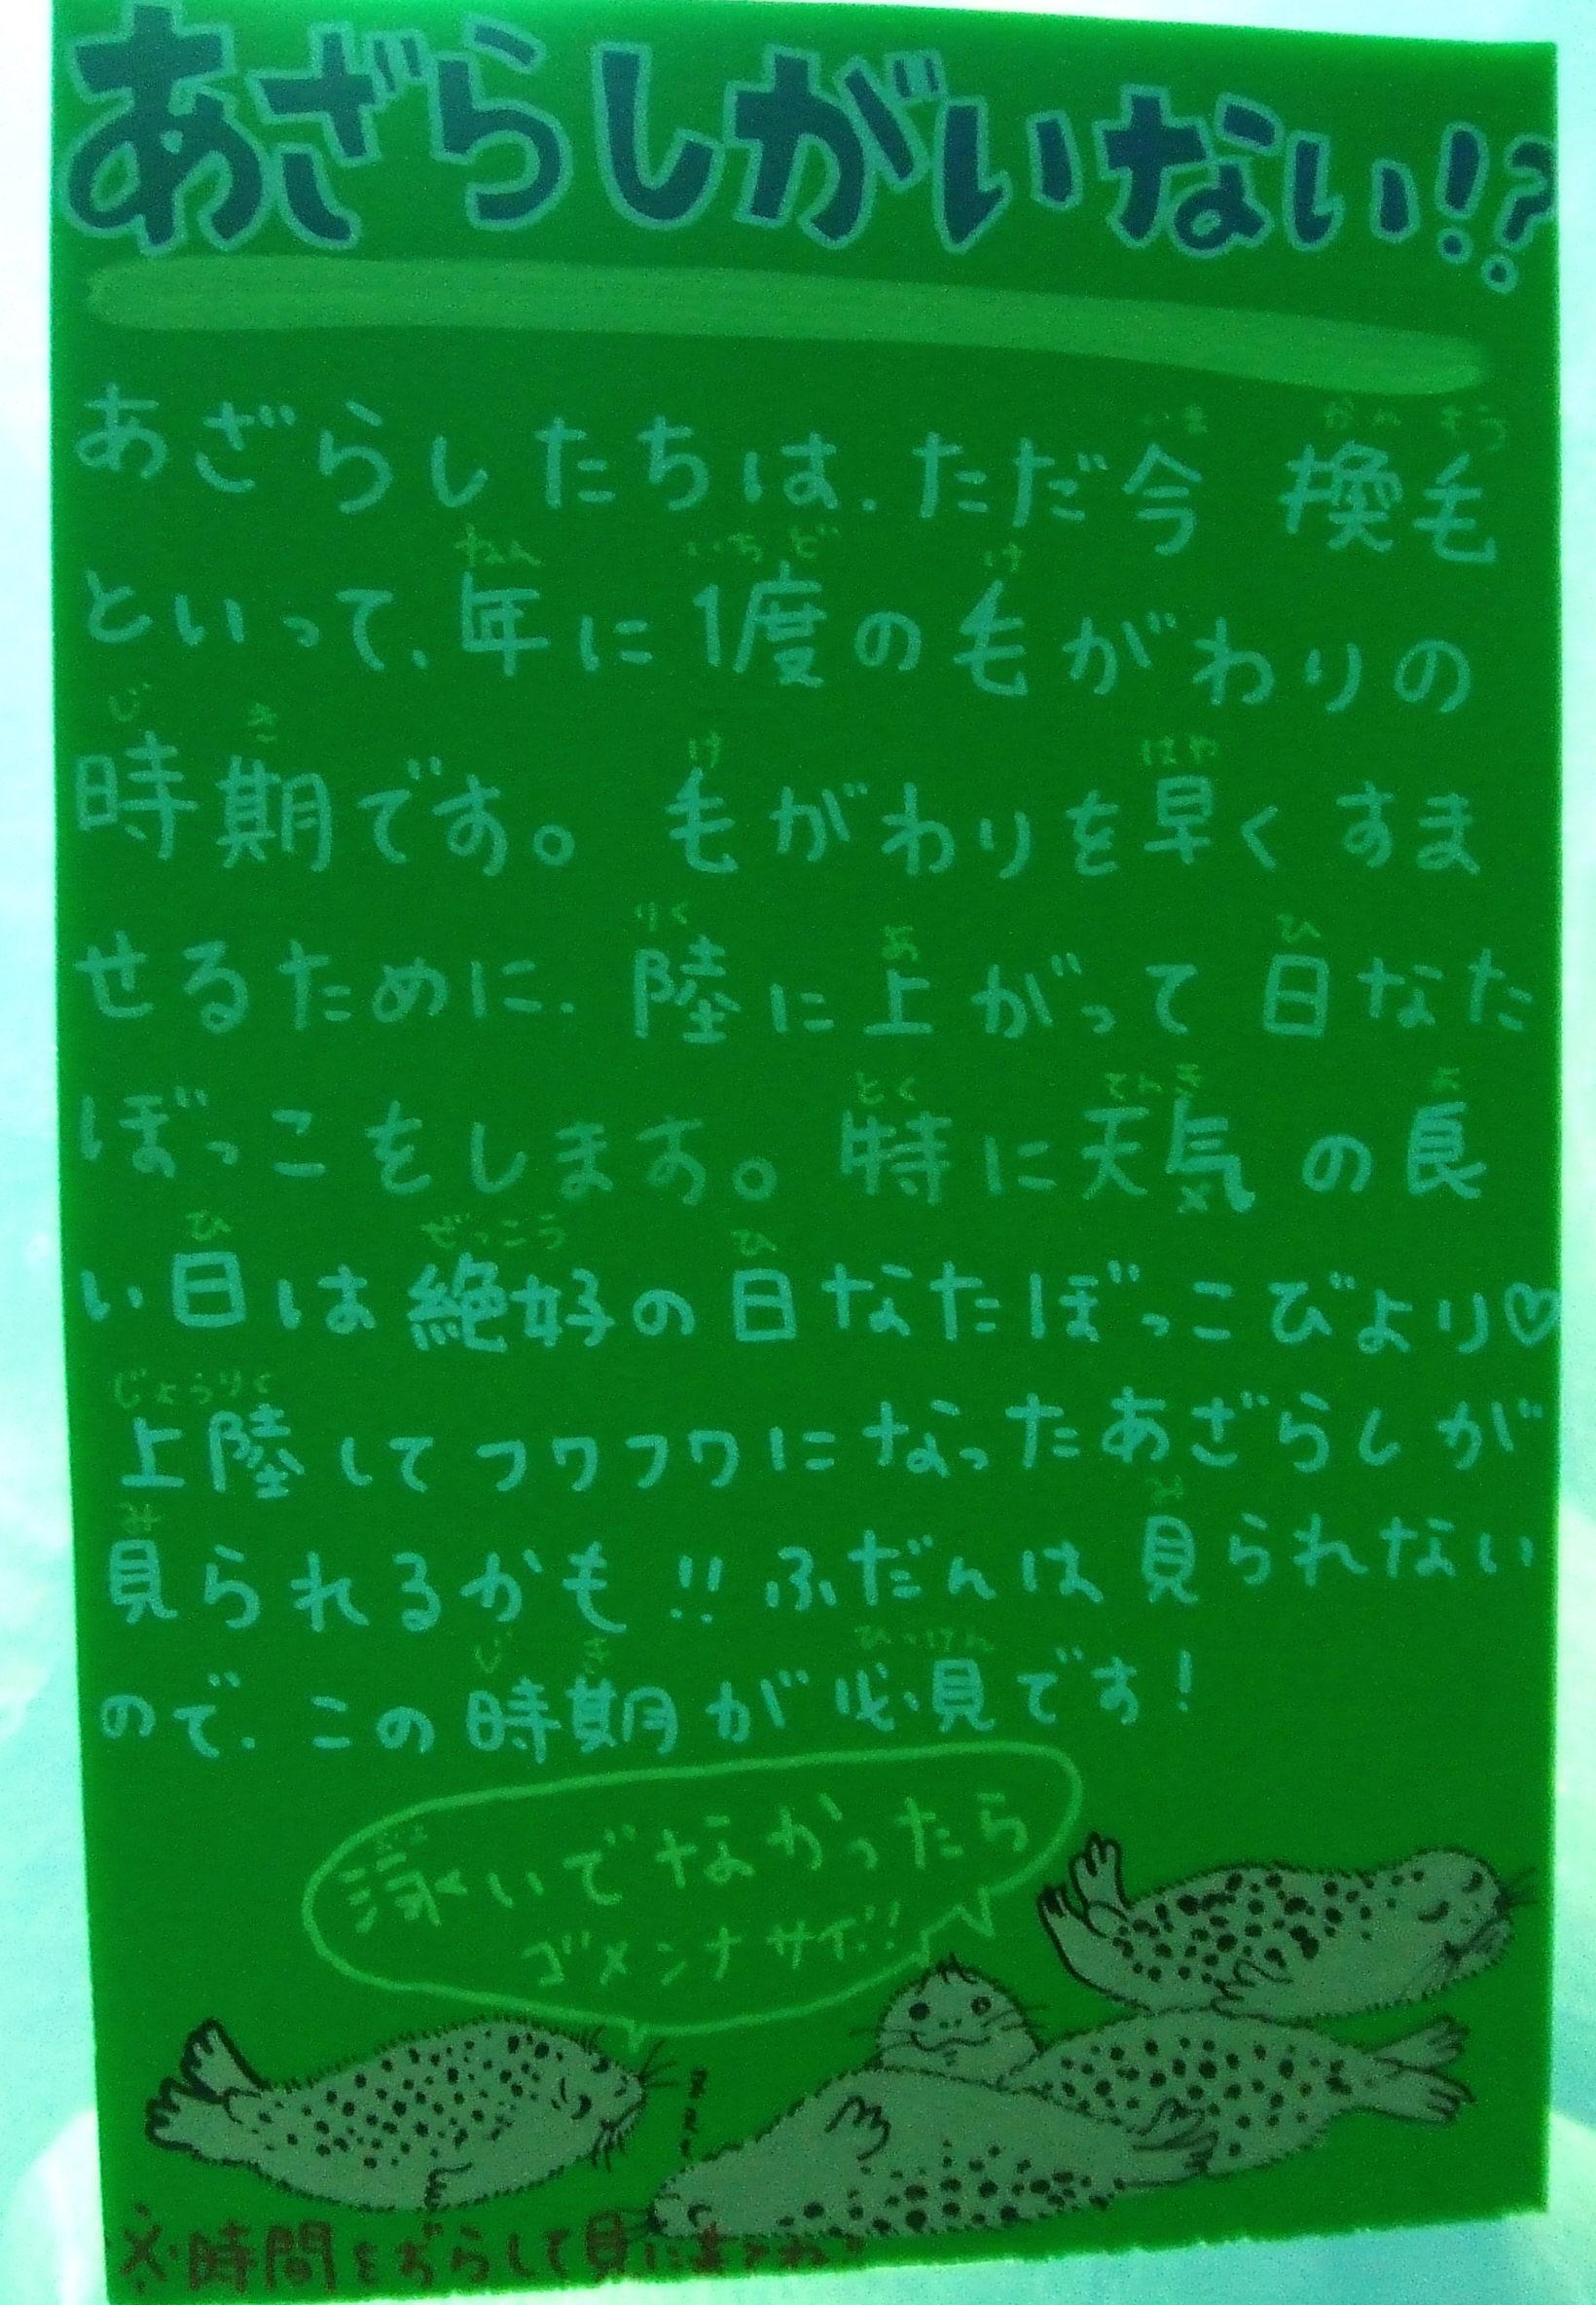 あざらしがいない!?
あざらしたちは、ただ今 換毛
といって、年に1度の毛がわりの
時期です。 毛がわりを早くすま
せるために、陸に上がって日なた
ぼっこをします。特に天気の良
い日は絶好の日なたぼっこびより♡
上陸してフワフワになったあざらしが
見られるかも!!ふだんは見られない
ので、この時期が必見です!
泳いでなかったら
ゴメンナサイ!!
※時間をずらして見に